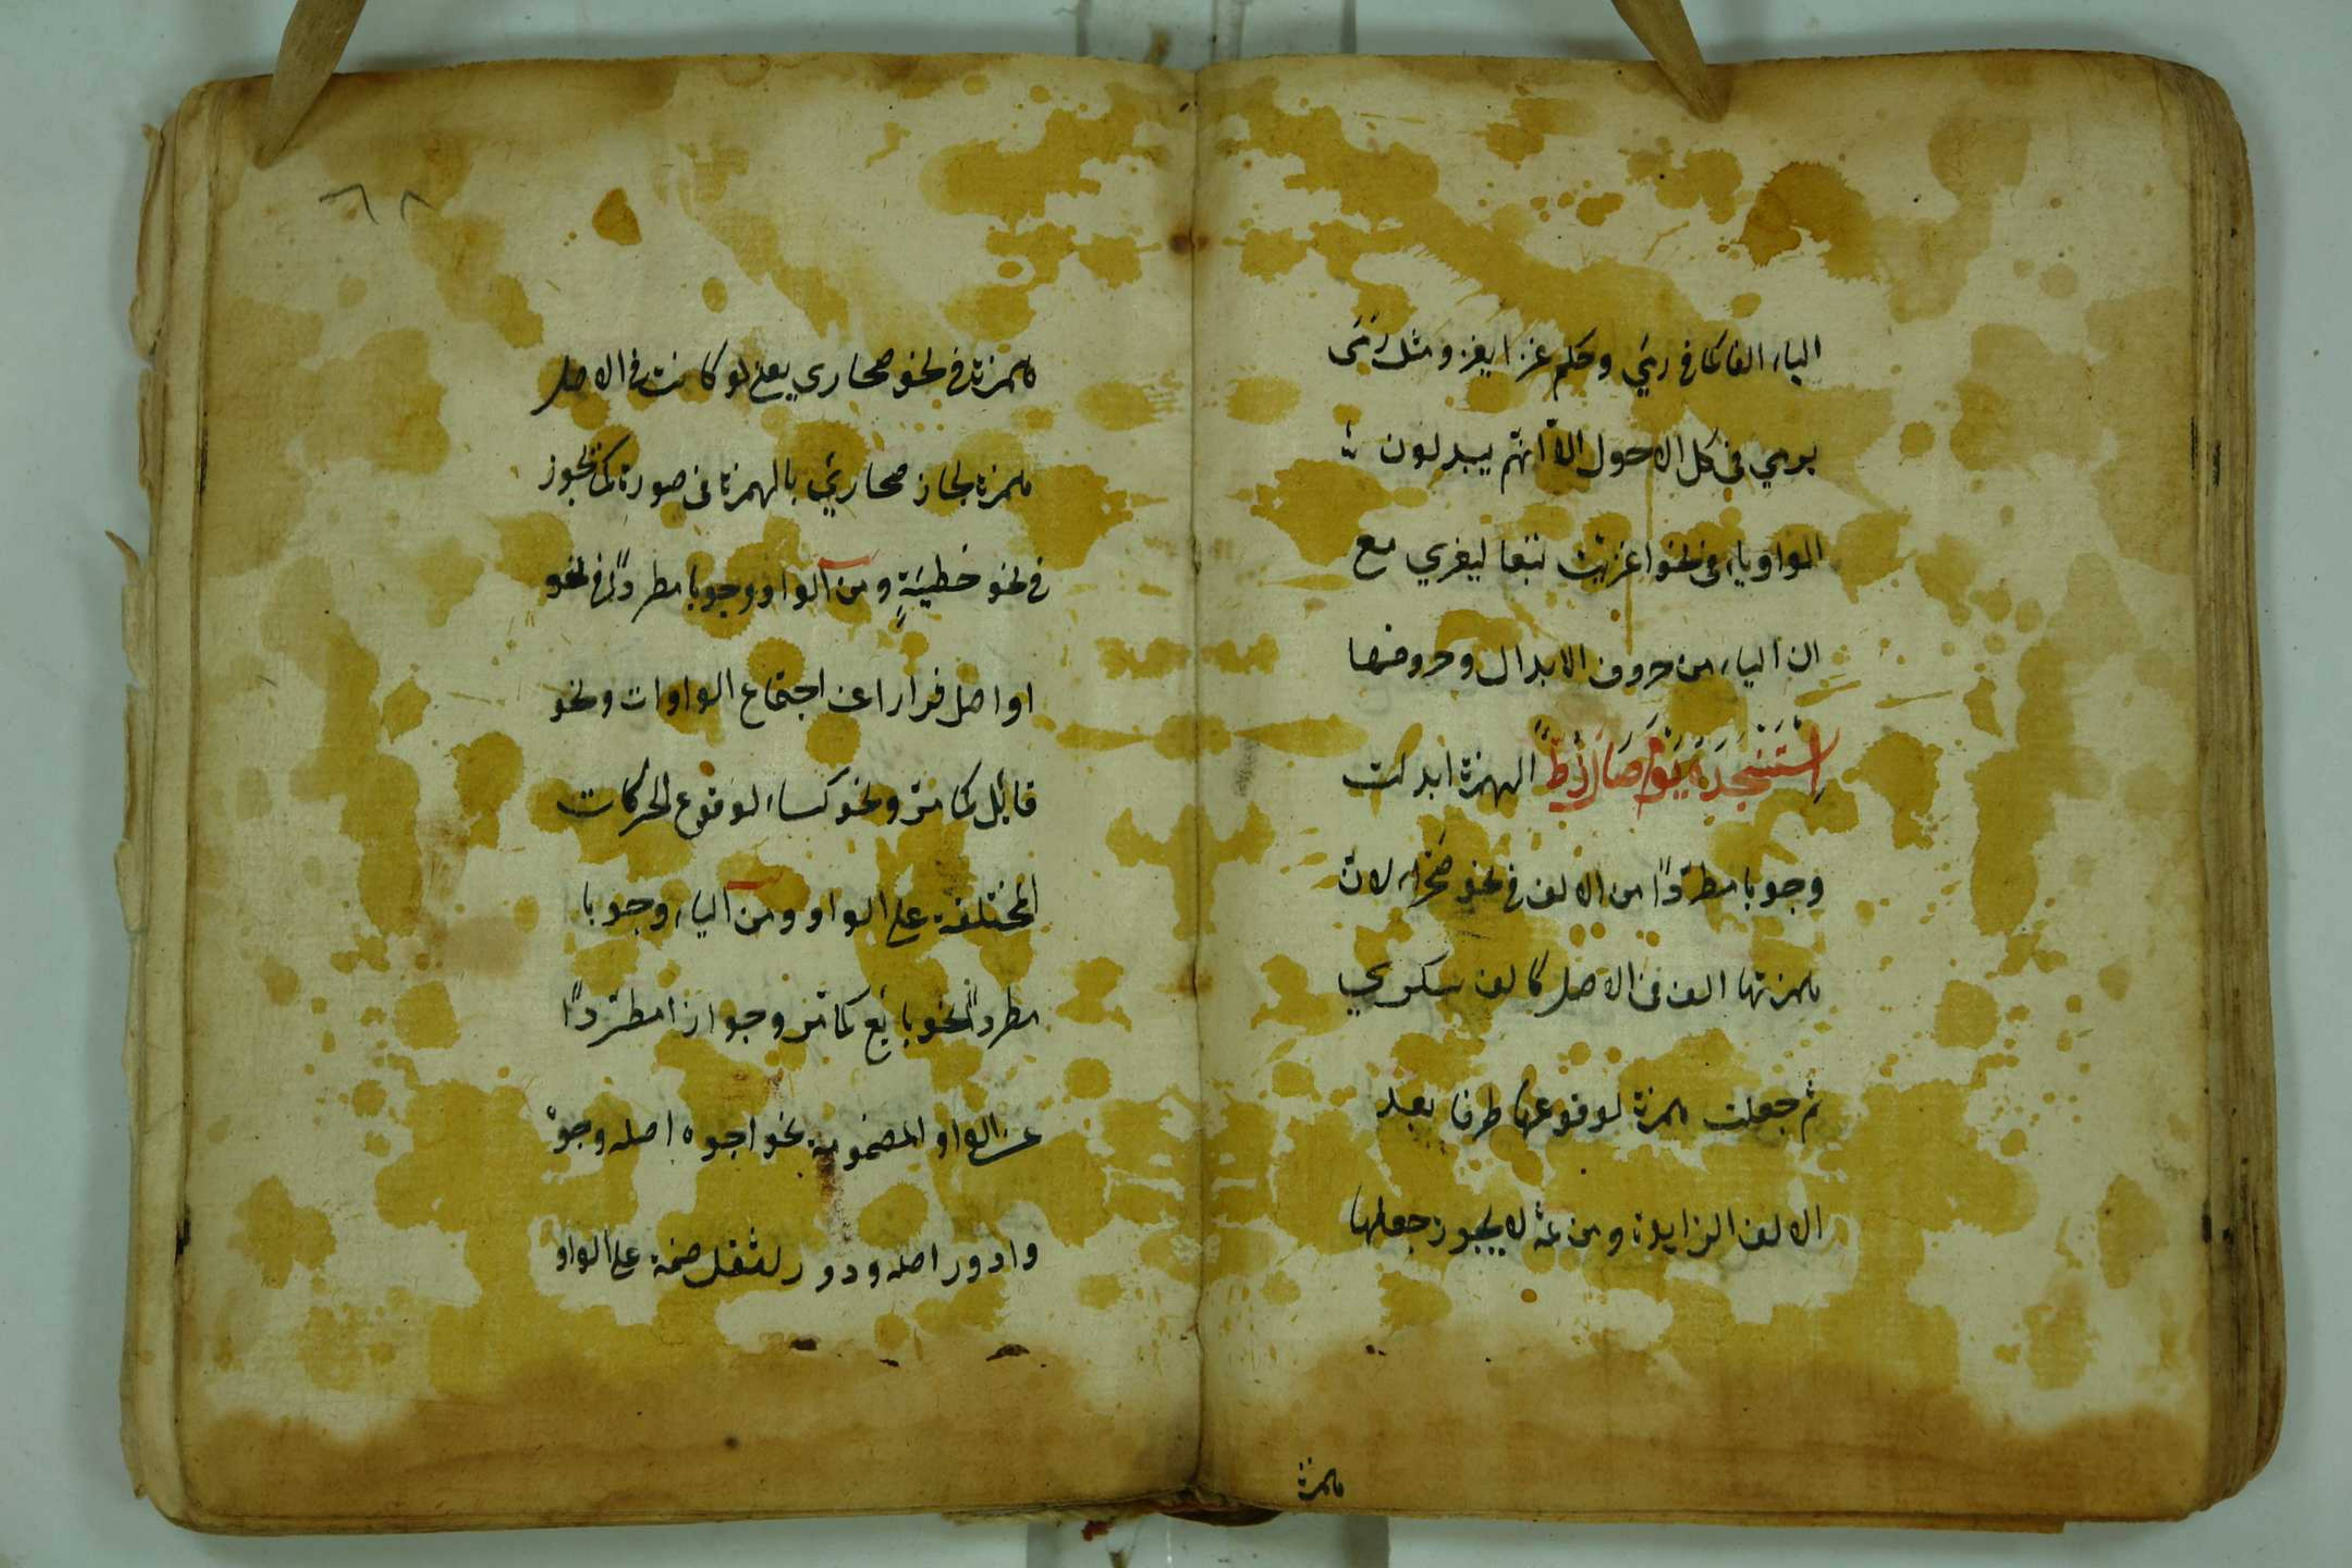 الياء الفا كما في رمي وحكم غزا يغزو مثل رمى
يرمي في كل الاحول الا انهم يبدلون
الواو ياء في نحو اغزيت تبعا ليغزي مع
ان الياء من حروف الابدال وحروفها
اِسْتَنْجَدَهُ يَوْمَ صَالَ زُطٌّ الهمزة ابدلت
وجوبا مطردًا من الالف في نحو صحراء لان
همزتها الف في الاصل كالف سكري
ثم جعلت همزة لوقوعها طرفا بعد
الالف الزايدة ومن ثمه لا يجوز جعلها
همزة
٦٨
همزة في نحو صحاري يعني لو كانت في الاصل
همزة لجاز صحارئ بالهمزة في صورة كما يجوز
في نحو خطيئةٍ ومن الواو وجوبا مطردًا في نحو
اواصل فرارا عن اجتماع الواوات ونحو
قائل كما مر ونحو كساء لوقوع الحركات
المختلفة على الواو ومن الياء وجوبا
مطردًا نحو بائع كما مر وجوازا مطردًا
عن الواو المضمومة نحو اجوه اصله وجوه
وادور اصله ودور لثقل ضمة على الواو